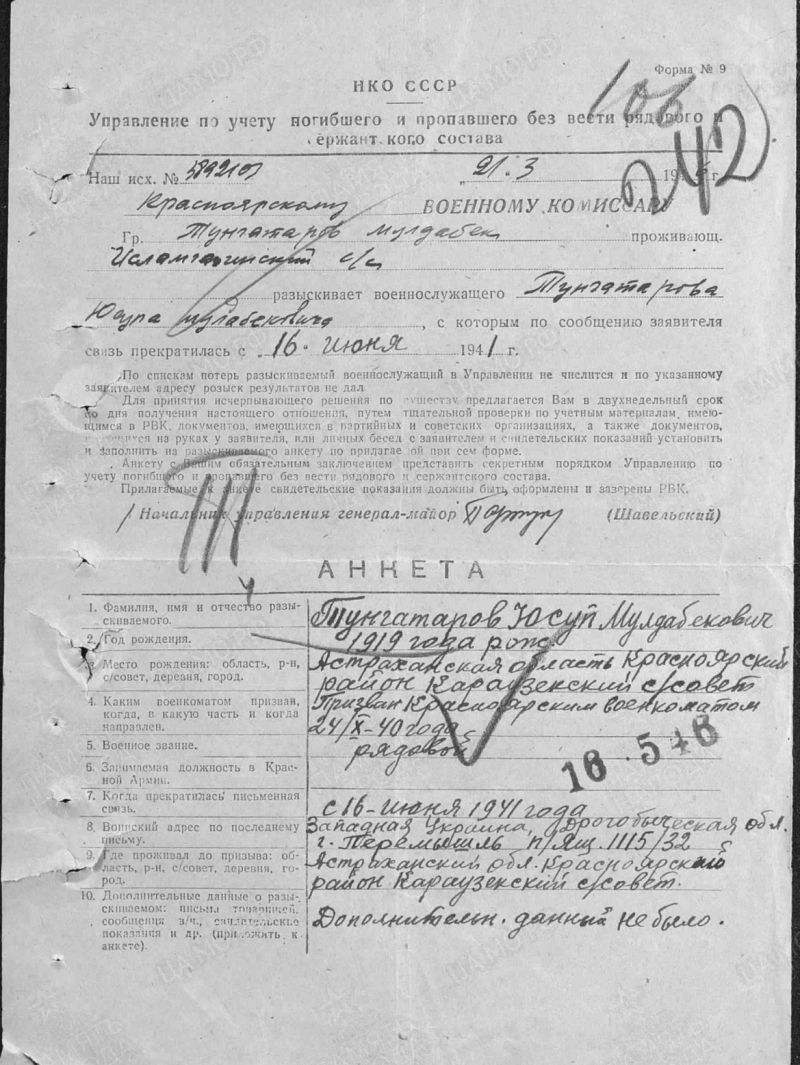 Форма № 9
106
НКО СССР
Управление по учету погибшего и пропавшего без вести рядового и
сержантского состава
242
Наш исх. № „21.3 194 г.
Красноярскому ВОЕННОМУ КОМИССАРУ
Гр. Тунгатаров Мулдабек проживающ.
с/с
разыскивает военнослужащего Тунгатарова
Мулдабековича, с которым по сообщению заявителя
связь прекратилась с „16. июня 1941 г.
По спискам потерь разыскиваемый военнослужащий в Управлении не числится и по указанному
заявителем адресу розыск результатов не дал
Для принятия исчерпывающего решения по существу предлагается Вам в двухнедельный срок
со дня получения настоящего отношения, путем тщательной проверки по учетным материалам, имею-
щимся в РВК, документов, имеющихся в партийных и советских организациях, а также документов,
имеющихся на руках у заявителя, или личных бесед с заявителем и свидетельских показаний установить
и заполнить на разыскиваемого анкету по прилагаемой при сем форме.
Анкету с Вашим обязательным заключением представить секретным порядком Управлению по
учету погибшего и пропавшего без вести рядового и сержантского состава.
Прилагаемые к анкете свидетельские показания должны быть оформлены и заверены РВК.
Начальник управления генерал-майор (Шавельский)
АНКЕТА
1. Фамилия, имя и отчество разы-
скиваемого.
Тунгатаров Юсуп Мулдабекович
2. Год рождения.
1919 года рож
3. Место рождения: область, р-н,
с/совет, деревня, город.
Астраханская область Красноярский
район Караузекский с/совет
4. Каким военкоматом призван,
когда, в какую часть и когда
направлен.
Призван Красноярским военкоматом
24/X-40 года
5. Военное звание.
рядовой
6. Занимаемая должность в Крас-
ной Армии.
16 5 46
7. Когда прекратилась письменная
связь.
с 16-июня 1941 года
8. Воинский адрес по последнему
письму.
Западная Украина, Дрогобыческая обл.
г. Перемышль п/Ящ. 1115/32
9. Где проживал до призыва: об-
ласть, р-н, с/совет, деревня, го-
род.
Астраханский обл. Красноярский
район Караузекский с/совет.
10. Дополнительные данные о разы-
скиваемом: письма товарищей,
сообщения в/ч., свидетельские
показания и др. (приложить к
анкете).
Дополнительн. данный не было.